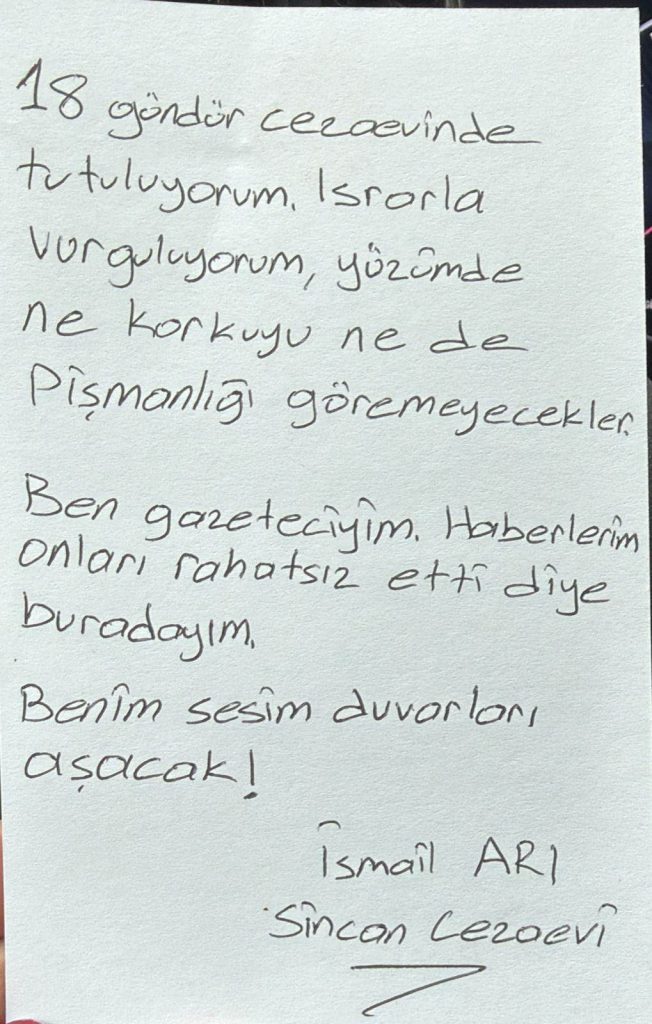 18 gündür cezaevinde
tutuluyorum. Israrla
vurguluyorum, yüzümde
ne korkuyu ne de
pişmanlığı göremeyecekler.
Ben gazeteciyim. Haberlerim
onları rahatsız etti diye
buradayım.
Benim sesim duvarları
aşacak!
İsmail ARI
Sincan Cezaevi